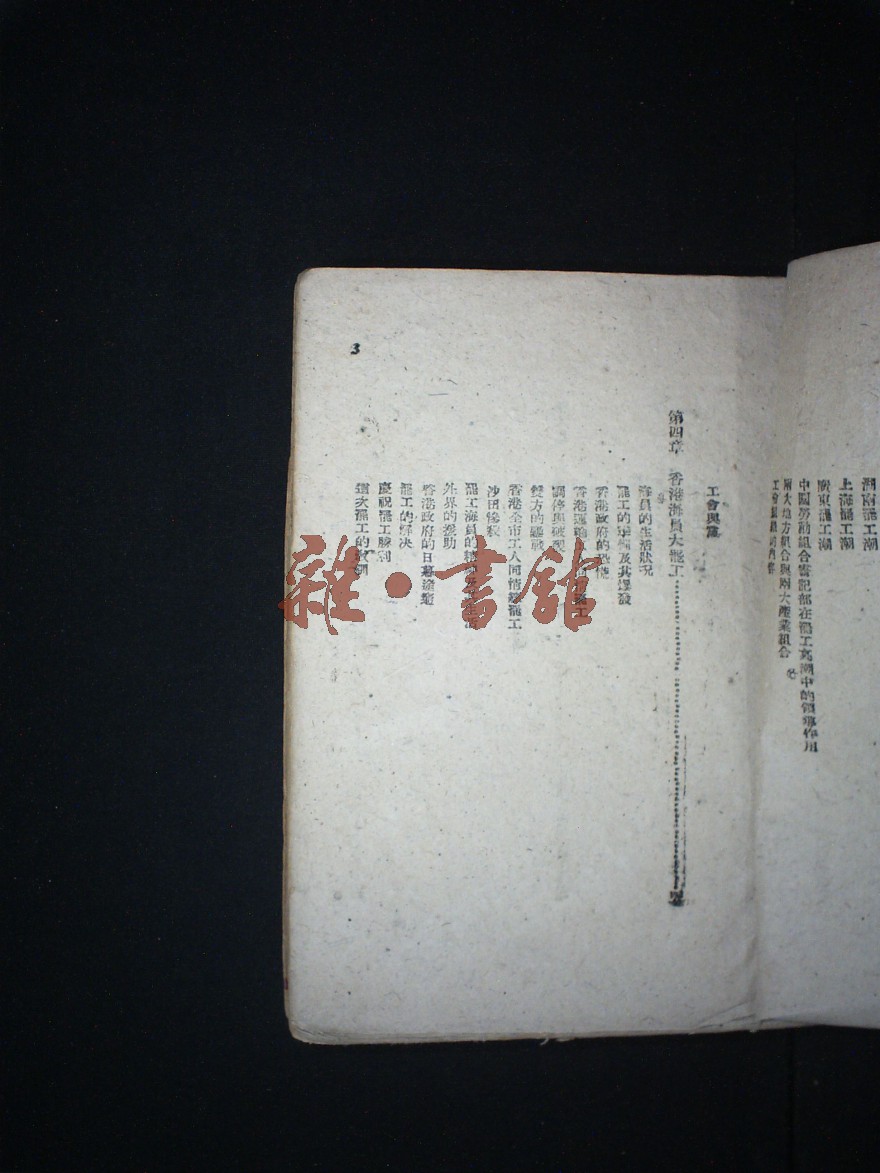 湖南罷工潮
上海罷工潮
廣東罷工潮
中國勞動組合書記部在罷工高潮中的領導作用
兩大地方組合與兩大產業組合
工會組織的內容
工會與黨
第四章 香港海員大罷工
海員的生活狀況
罷工的準備及其爆發
香港政府的恐慌
香港運輸工人罷工
調停與破裂
雙方的
香港全市工人同情總罷工
沙田慘殺
罷工海員的精神
外界的援助
香港政府的日暮途窮
罷工的解決
慶祝罷工勝利
這次罷工的教訓
3
雜·書館